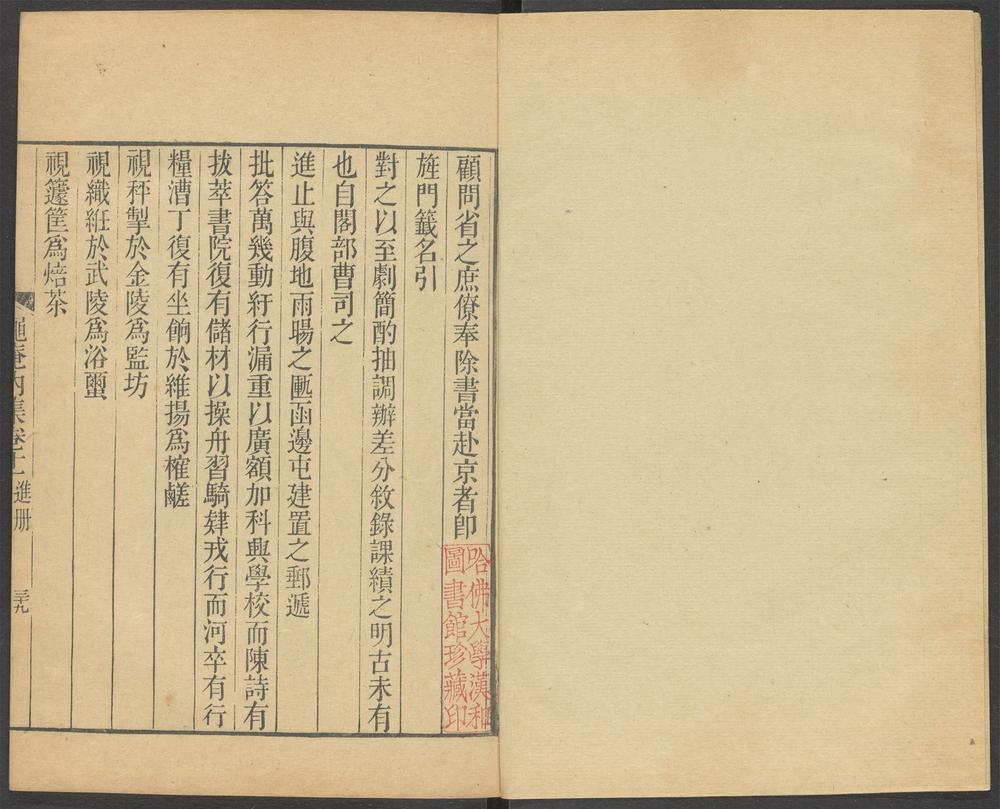 顧問省之庶僚奉除書當赴京者即
旌門籤名引
對之以至劇簡酌抽調辦差分敘錄課績之明古未有
也自閣部曹司之
進止與腹地雨暘之匭函邊屯建置之郵遞
批答萬幾動紆行漏重以廣額加科興學校而陳詩有
拔萃書院復有儲材以操舟習騎肄戎行而河卒有行
糧漕丁復有坐餉於維揚為榷鹺
視秤掣於金陵為監坊
視織紝於武陵為浴䘉
視籧筐為焙茶
內集卷十
進册
三十九
哈佛大學漢和
圖書館珍藏印